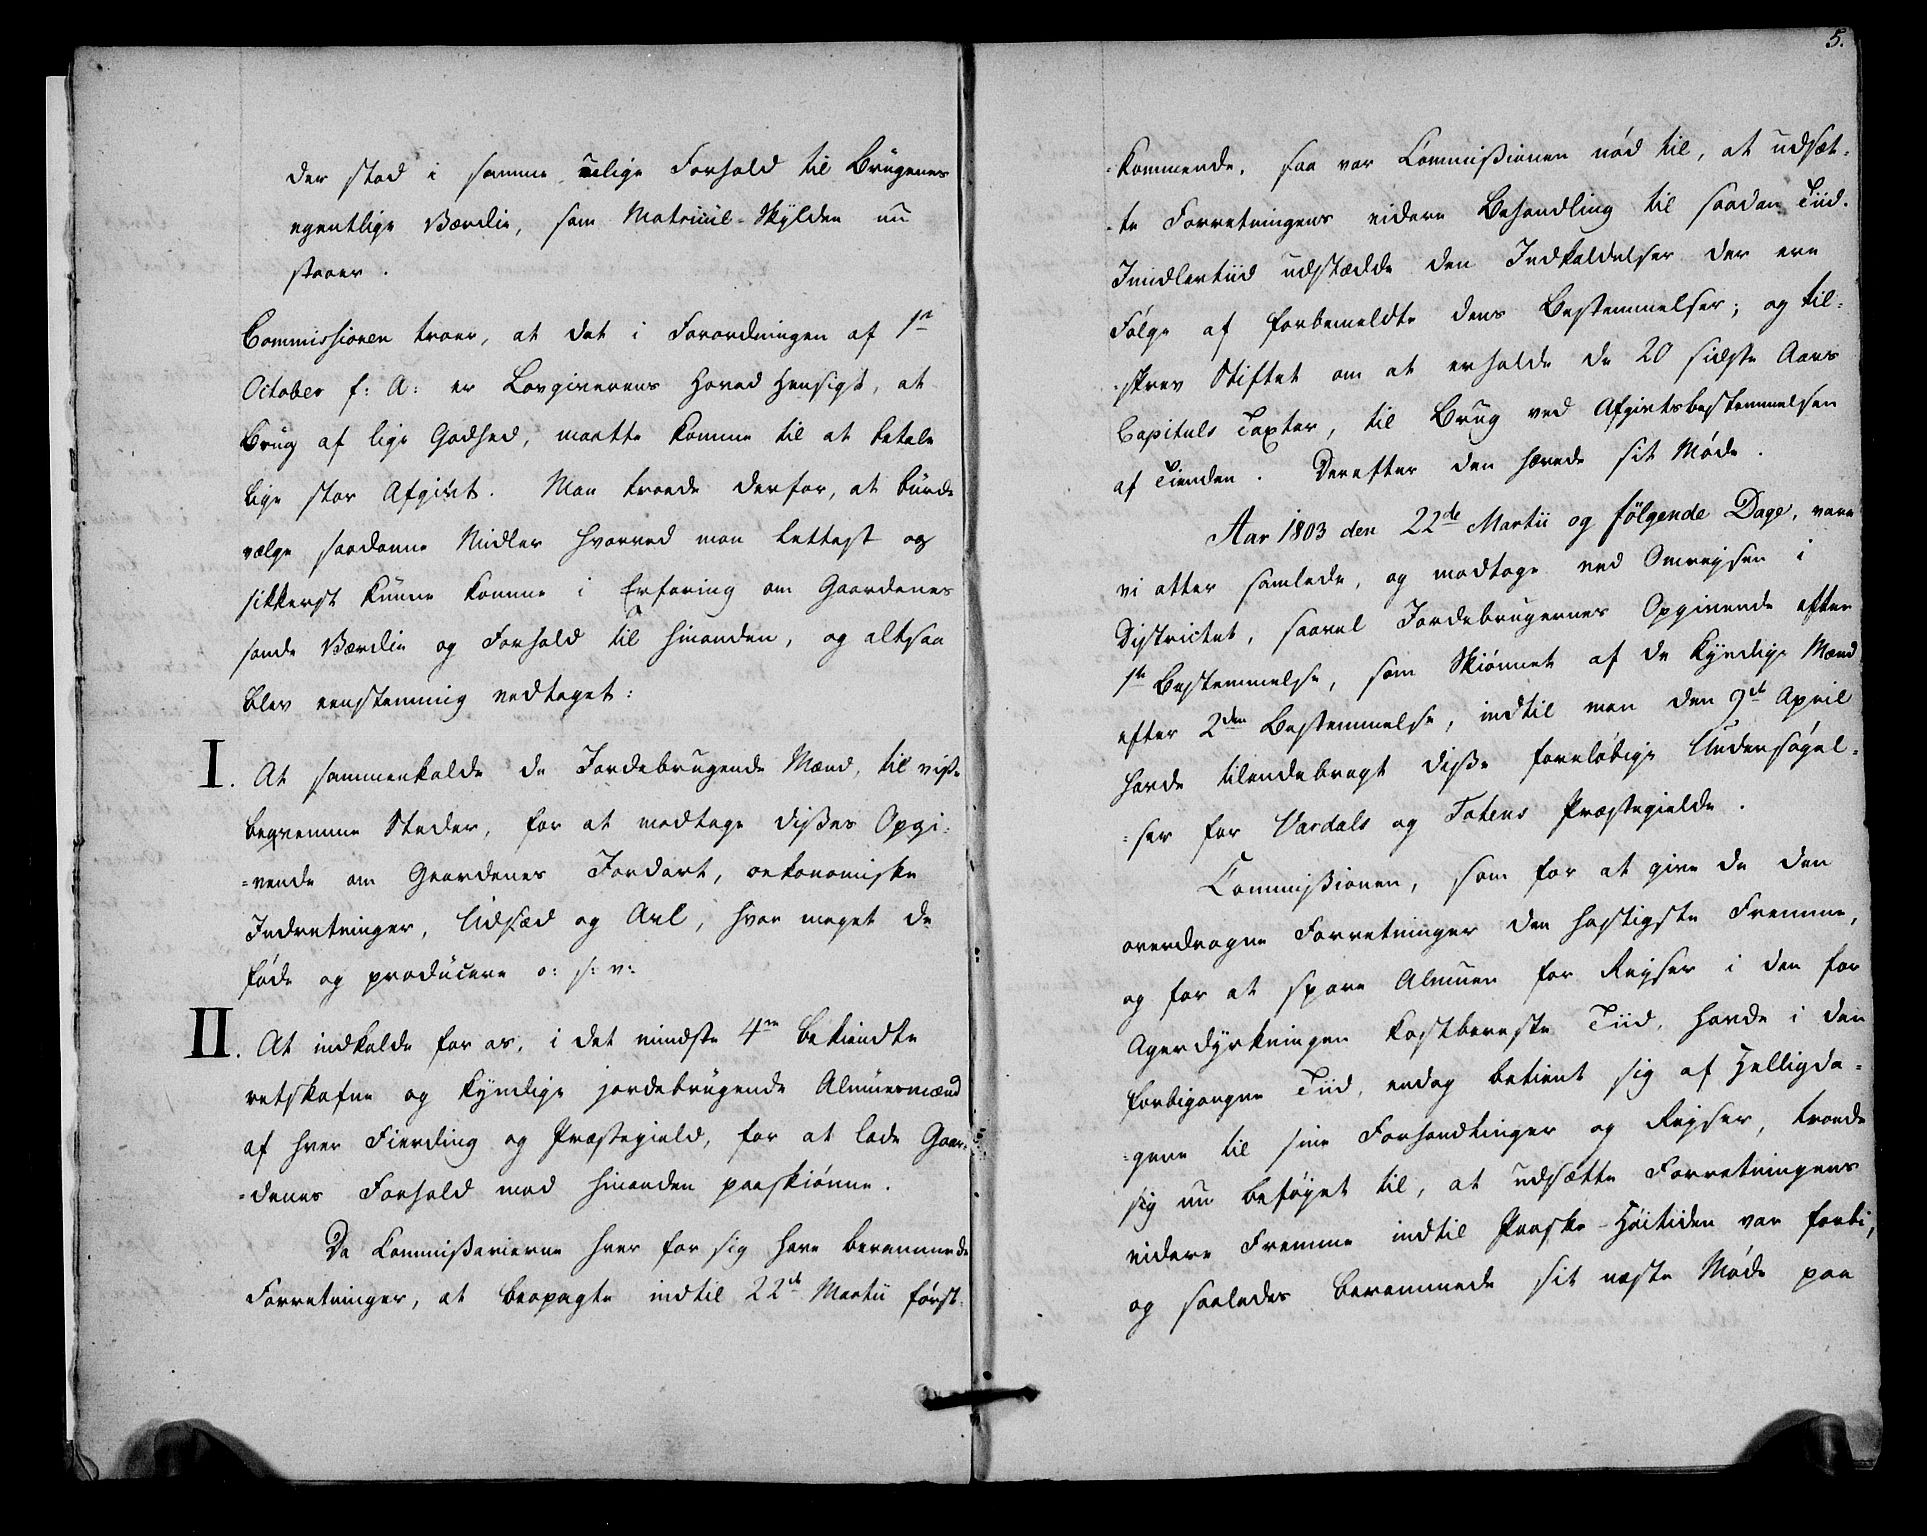 der stod i samme ulige Forhold til Brugenes
egentlige Værdie, som Matricul-Skylden nu
staaer.
Commissionen troer, at det i Forordningen af 1ste
October f: A: er Lovgiverens Hoved Hensigt, at
Brug af lige Godhed, maatte komme til at betale
lige stor Afgivt. Man troede derfor, at burde
vælge saadanne Midler hvorved man lettest og
sikkerst kunne komme i Erfaring om Gaardenes
sande Værdie og Forhold til hinanden, og altsaa
blev eenstemmig vedtaget:
I. At sammenkalde de Jordebrugende Mænd, til visse
beqvemme Steder, for at modtage disses Opgi-
=vende om Gaardenes Jordart, oekonomiske
Indretninger, Udsæd og Avl, hvor meget de
føde og producere o: s: v:
II. At indkalde for os, i det mindste 4re bekiendte
retskafne og kyndige jordebrugende Almuesmænd
af hver Fierding og Præstegield, for at lade Gaar-
=denes Forhold mod hinanden paaskiønne.
Da Commissairerne hver for sig have berammede
Forretninger, at beopagte indtil 22de Martii først-
5.
-kommende, saa var Commissionen nød til, at udsæt-
-te Forretningens videre Behandling til saadan Tiid.
Imidlertiid udstædde den Indkaldelser der ere
Følge af forbemeldte dens Bestemmelser; og til-
-skrev Stiftet om at erholde de 20 sidste Aars
Capituls Taxter, til Brug ved Afgivtsbestemmelsen
af Tienden. Derefter den hævede sit Møde.
Aar 1803 den 22de Martii og følgende Dage, vare
vi atter samlede, og modtoge ved Omreysen i
Districtet, saavel Jordebrugernes Opgivende efter
1ste Bestemmelse, som Skiønnet af de kyndige Mænd
efter 2den Bestemmelse, indtil man den 9de April
havde tilendebragt disse foreløbige Undersøgel-
=ser for Vardals og Totens Præstegielde.
Commissionen, som for at give de den
overdragne Forretninger den hastigste Fremme,
og for at spare Almuen for Reyser i den for
Agerdyrkningen kostbareste Tiid, havde i den
forbigangne Tiid, endog betient sig af Helligda-
=gene til sine Forhandlinger og Reyser, troede
sig nu beføyet til, at udsætte Forretningens
videre Fremme indtil Paaske-Høitiden var forbi,
og saaledes berammede sit næste Møde paa